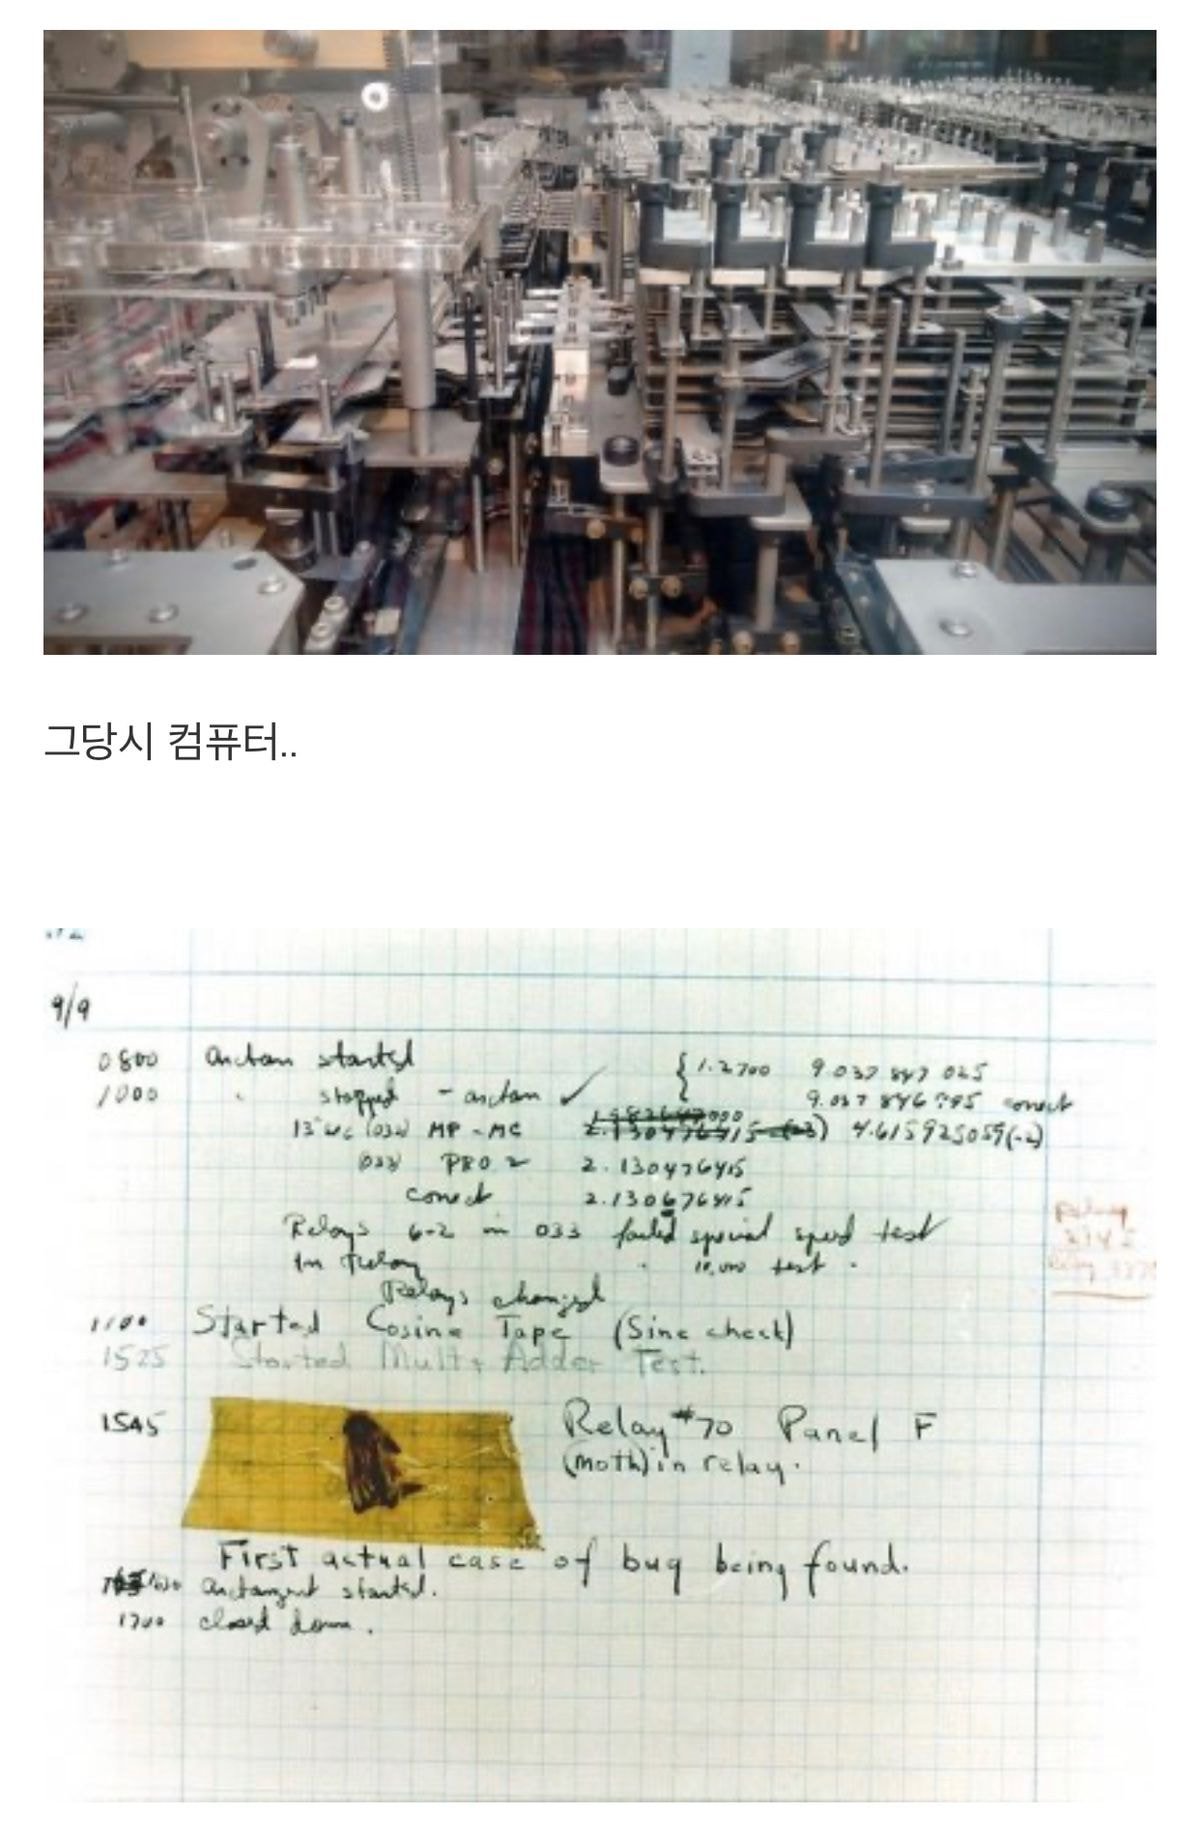 그당시 컴퓨터..
9/9
0800 arctan started {1.2700 9.037 847 025
1000 " stopped - arctan ✓ 9.037 846 995 correct
13"UC (032) MP - MC 4.615925059(-2)
(033) PRO 2 2.130476415
correct 2.130676415
Relays 6-2 in 033 failed special speed test
in relay " 10.000 test .
Relays changed
1100 Started Cosine Tape (Sine check)
1525 Started Mult+ Adder Test.
1545 Relay #70 Panel F
(moth) in relay.
First actual case of bug being found.
1630 arctangent started.
1700 closed down.